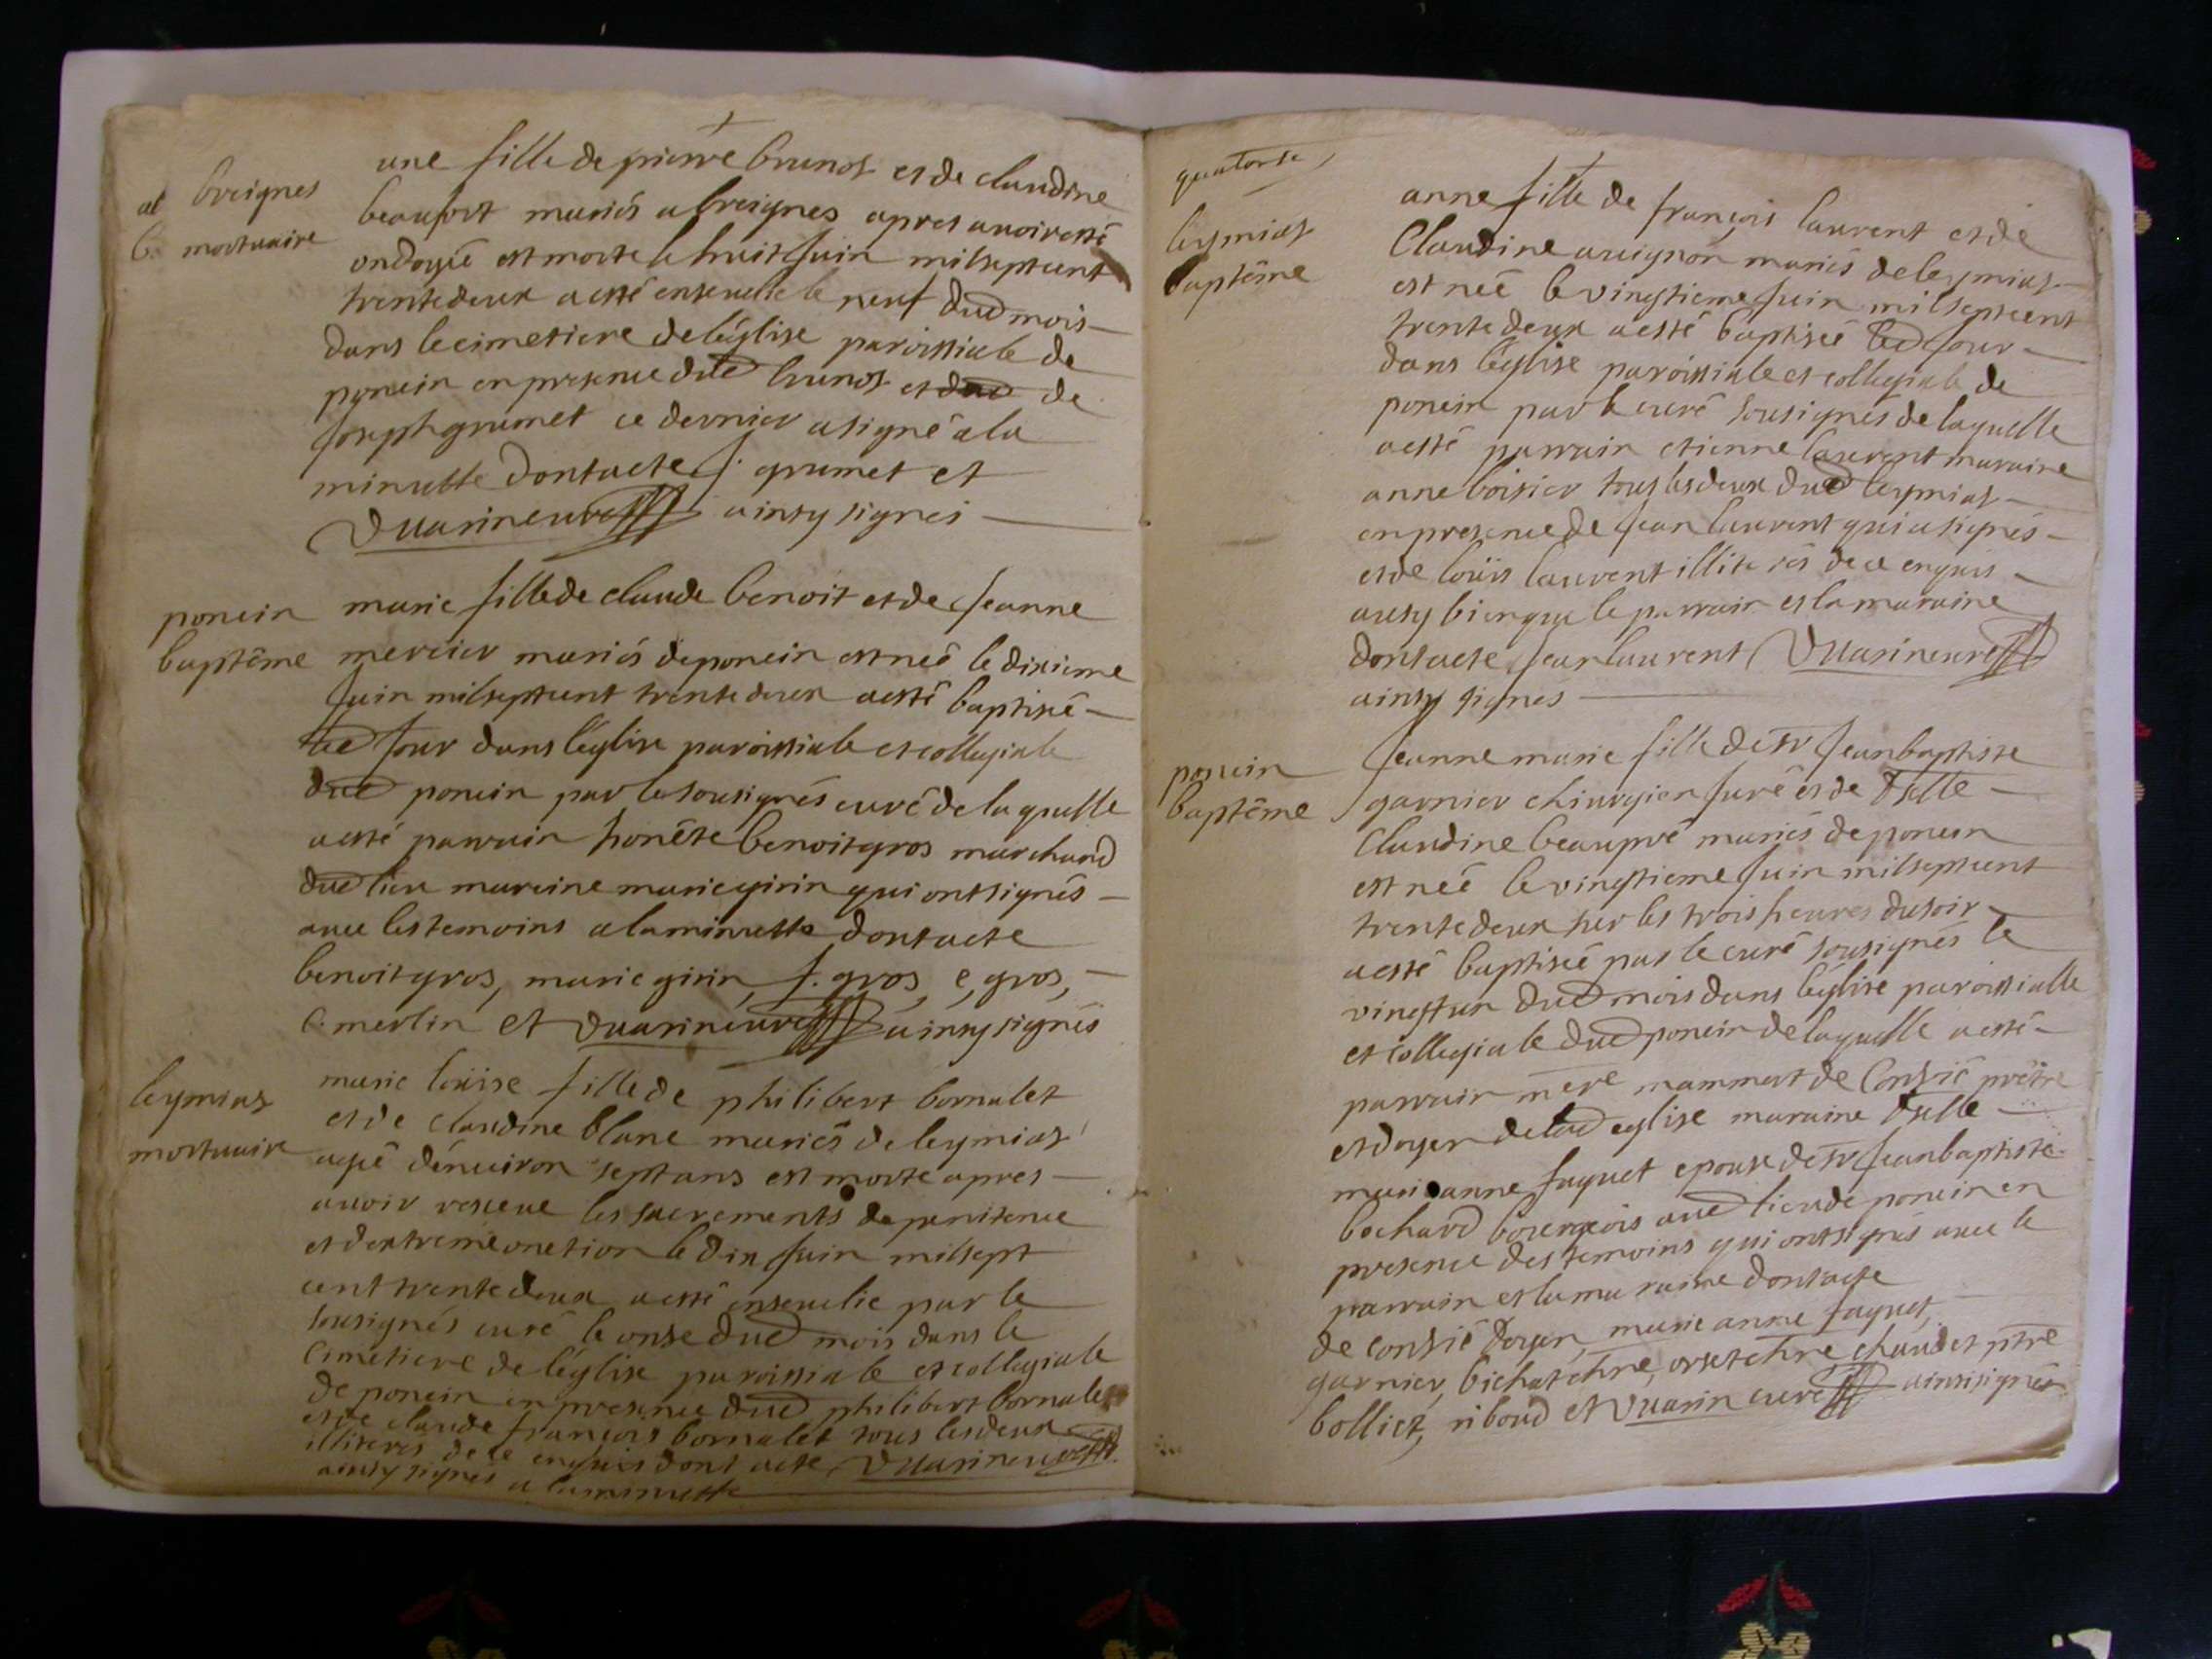 breignes
mortuaire
une fille de pierre brunot et de claudine
beaufort mariés a breignes apres avoir esté
ondoyié est morte le huit juin mil sept cent
trente deux a esté ensevelie le neuf dud mois
dans le cimetiere de l'église paroissiale de
poncin en presence dud brunot et de
joseph grumet ce dernier a signé a la
minutte dont acte j. grumet et
Duarin curé ainsy signés
poncin
baptême
marie fille de claude benoit et de jeanne
mercier mariés de poncin est neé le dixieme
juin mil sept cent trente deux a esté baptisé
led jour dans l'église paroissiale et collegiale
dud poncin par le sousignés curé de laquelle
a esté parrain honête benoit gros marchand
dud lieu mareine marie girin qui ont signés
avec les temoins a la minutte dont acte
benoit gros, marie girin, f. gros, e, gros,
c. merlin et Duarin curé ainsy signés
leymiat
mortuaire
marie loüise fille de philibert bornalet
et de claudine blanc mariés de leymiat
agé dénviron sept ans est morte apres
avoir receue les sacrements de penitence
et d'extreme onction le dix juin mil sept
cent trente deux a esté ensevelie par le
sousignés curé le onse dud mois dans le
cimetiere de l'église paroissiale et collegiale
de poncin en presence dud philibert bornalet
et de claude françois bornalet tous les deux
illiteres de ce enquis dont acte Duarin curé
ainsy signés a la minutte
quatorse
leymiat
baptême
anne fille de françois laurent et de
Claudine avignon mariés de leymiat
est neé le vingtieme juin mil sept cent
trente deux a esté baptiseé led jour
dans l'église paroissiale et collegiale de
poncin par le curé sousignés de laquelle
a esté parrain etienne laurent maraine
anne boisier tous les deux dud leymiat
en presence de jean laurent qui a signés
et de loüis laurent illiterés de ce enquis
ausy bien que le parrain et la maraine
dont acte jean laurent Duarin curé
ainsy signés
poncin
baptême
jeanne marie fille de sr jean baptiste
garnier chirurgien juré et de dselle
Claudine beaupré mariés de poncin
est neé le vingtieme juin mil sept cent
trente deux sur les trois heures du soir
a esté baptiseé par le curé sousignés le
vingt un dud mois dans l'église paroissialle
et collegiale dud poncin de laquelle a esté
parrain mere mammert de Conzié prêtre
et doyen de lad eglise maraine dselle
marianne faguet epouse de sr jean baptiste
bochard bourgeois aud lieu de poncin en
presence des temoins qui ont signés avec le
parrain et la maraine dont acte
de conzié doyen, marie anne faguet,
garnier, bichat chne, orset chne, chaudet ptre
bolliet, riboud et Duarin curé ainsi signés